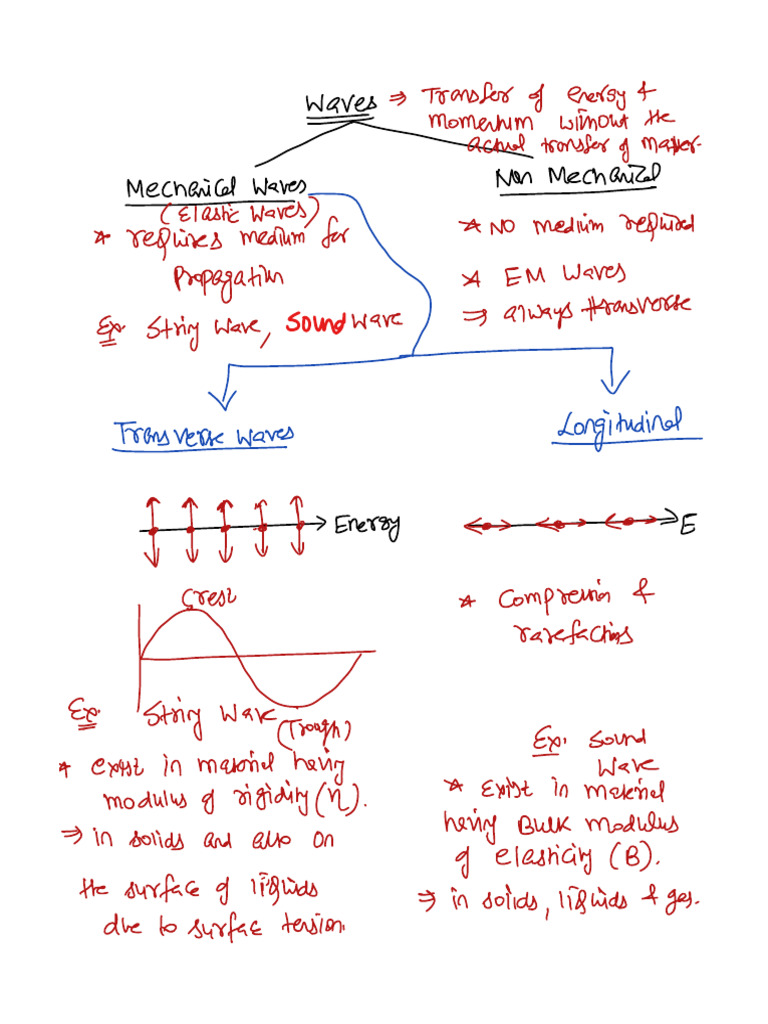 Waves ⇒ Transfer of energy &
momentum without the
actual transfer of matter.
Mechanical Waves
(Elastic Waves)
* requires medium for
Propagation
Ex String Wave, Sound Wave
Non Mechanical
* NO medium required
* EM Waves
⇒ always transverse
Transverse Waves
Longitudinal
Energy
E
Crest
(Trough)
Ex. String Wave
* exist in material having
modulus of rigidity (η).
⇒ in solids and also on
the surface of liquids
due to surface tension.
* Compression &
rarefactions
Ex. Sound
Wave
* Exist in material
having Bulk modulus
of elasticity (B).
⇒ in solids, liquids & gas.